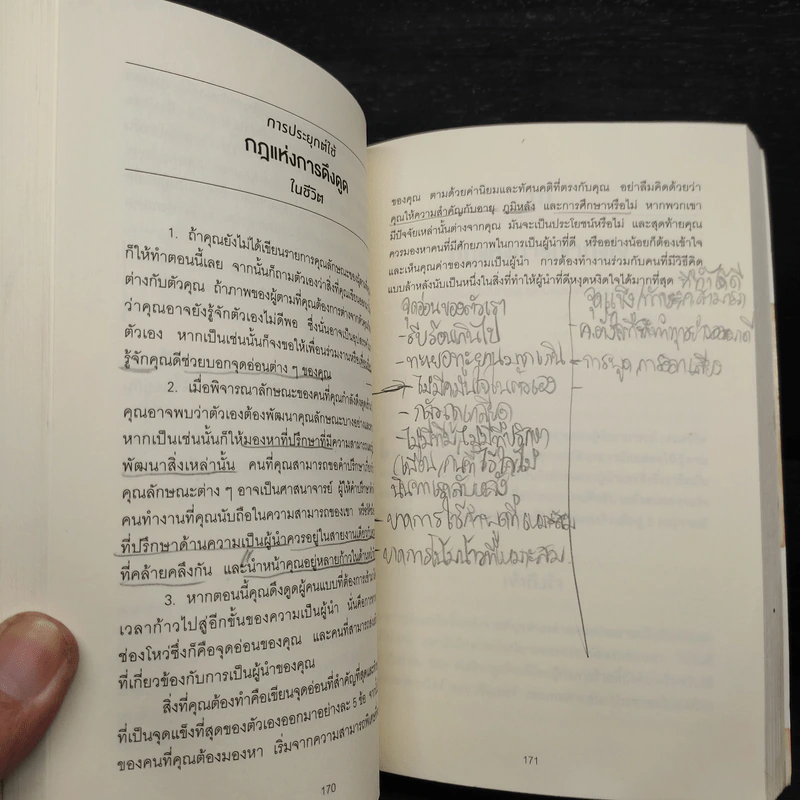 การประยุกต์ใช้
กฎแห่งการดึงดูด
ในชีวิต
1. ถ้าคุณยังไม่ได้เขียนรายการคุณลักษณะของ
ก็ให้ทำตอนนี้เลย จากนั้นก็ถามตัวเองว่าสิ่งที่คุณเขียน
ต่างกับตัวคุณ ถ้าภาพของผู้ตามที่คุณต้องการต่างจากตัว
ว่าคุณอาจยังรู้จักตัวเองไม่ดีพอ ซึ่งนั่นอาจเป็น
ตัวเอง หากเป็นเช่นนั้นก็จงขอให้เพื่อนร่วมงานหรือ
รู้จักคุณดีช่วยบอกจุดอ่อนต่าง ๆ ของคุณ
2. เมื่อพิจารณาลักษณะของคนที่คุณกำลังดึงดูด
คุณอาจพบว่าตัวเองต้องพัฒนาคุณลักษณะบางอย่าง
หากเป็นเช่นนั้นก็ให้มองหาที่ปรึกษาที่มีความสามารถ
พัฒนาสิ่งเหล่านั้น คนที่คุณสามารถขอคำปรึกษา
คุณลักษณะต่าง ๆ อาจเป็นศาสนาจารย์ ผู้ให้คำปรึกษา
คนทำงานที่คุณนับถือในความสามารถของเขา หรือ
ที่ปรึกษาด้านความเป็นผู้นำควรอยู่ในสายงานเดียวกัน
ที่คล้ายคลึงกัน และนำหน้าคุณอยู่หลายก้าวใน
3. หากตอนนี้คุณดึงดูดผู้คนแบบที่ต้องการ
เวลาก้าวไปสู่อีกขั้นของความเป็นผู้นำ นั่นคือการ
ช่องโหว่ซึ่งก็คือจุดอ่อนของคุณ และคนที่สามารถ
ที่เกี่ยวข้องกับการเป็นผู้นำของคุณ
สิ่งที่คุณต้องทำคือเขียนจุดอ่อนที่สำคัญที่สุดและ
ที่เป็นจุดแข็งที่สุดของตัวเองออกมาอย่างละ 5 ข้อ
ของคนที่คุณต้องมองหา เริ่มจากความสามารถ
170
ของคุณ ตามด้วยค่านิยมและทัศนคติที่ตรงกับคุณ อย่าลืมคิดด้วยว่า
คุณให้ความสำคัญกับอายุ ภูมิหลัง และการศึกษาหรือไม่ หากพวกเขา
มีปัจจัยเหล่านั้นต่างจากคุณ มันจะเป็นประโยชน์หรือไม่ และสุดท้ายคุณ
ควรมองหาคนที่มีศักยภาพในการเป็นผู้นำที่ดี หรืออย่างน้อยก็ต้องเข้าใจ
และเห็นคุณค่าของความเป็นผู้นำ การต้องทำงานร่วมกับคนที่มีวิธีคิด
แบบล้าหลังนับเป็นหนึ่งในสิ่งที่ทำให้ผู้นำที่ดีหงุดหงิดใจได้มากที่สุด
จุดอ่อนของตัวเรา
- รีบร้อนเกินไป
- ทะเยอทะยานมากเกิน
- ไม่มีความมั่นใจในตัวเอง
- กลัวถูกเกลียด
- ไม่มีทีม/ไม่มีที่ปรึกษา
เพื่อน/คนที่ไว้ใจไม่
นินทาเราลับหลัง
- ขาดการใช้คำพูดที่เหมาะสม
- ขาดการโน้มน้าวที่เหมาะสม
จุดแข็ง
ที่ทำได้ดี
- การพูด การออกเสียง
171